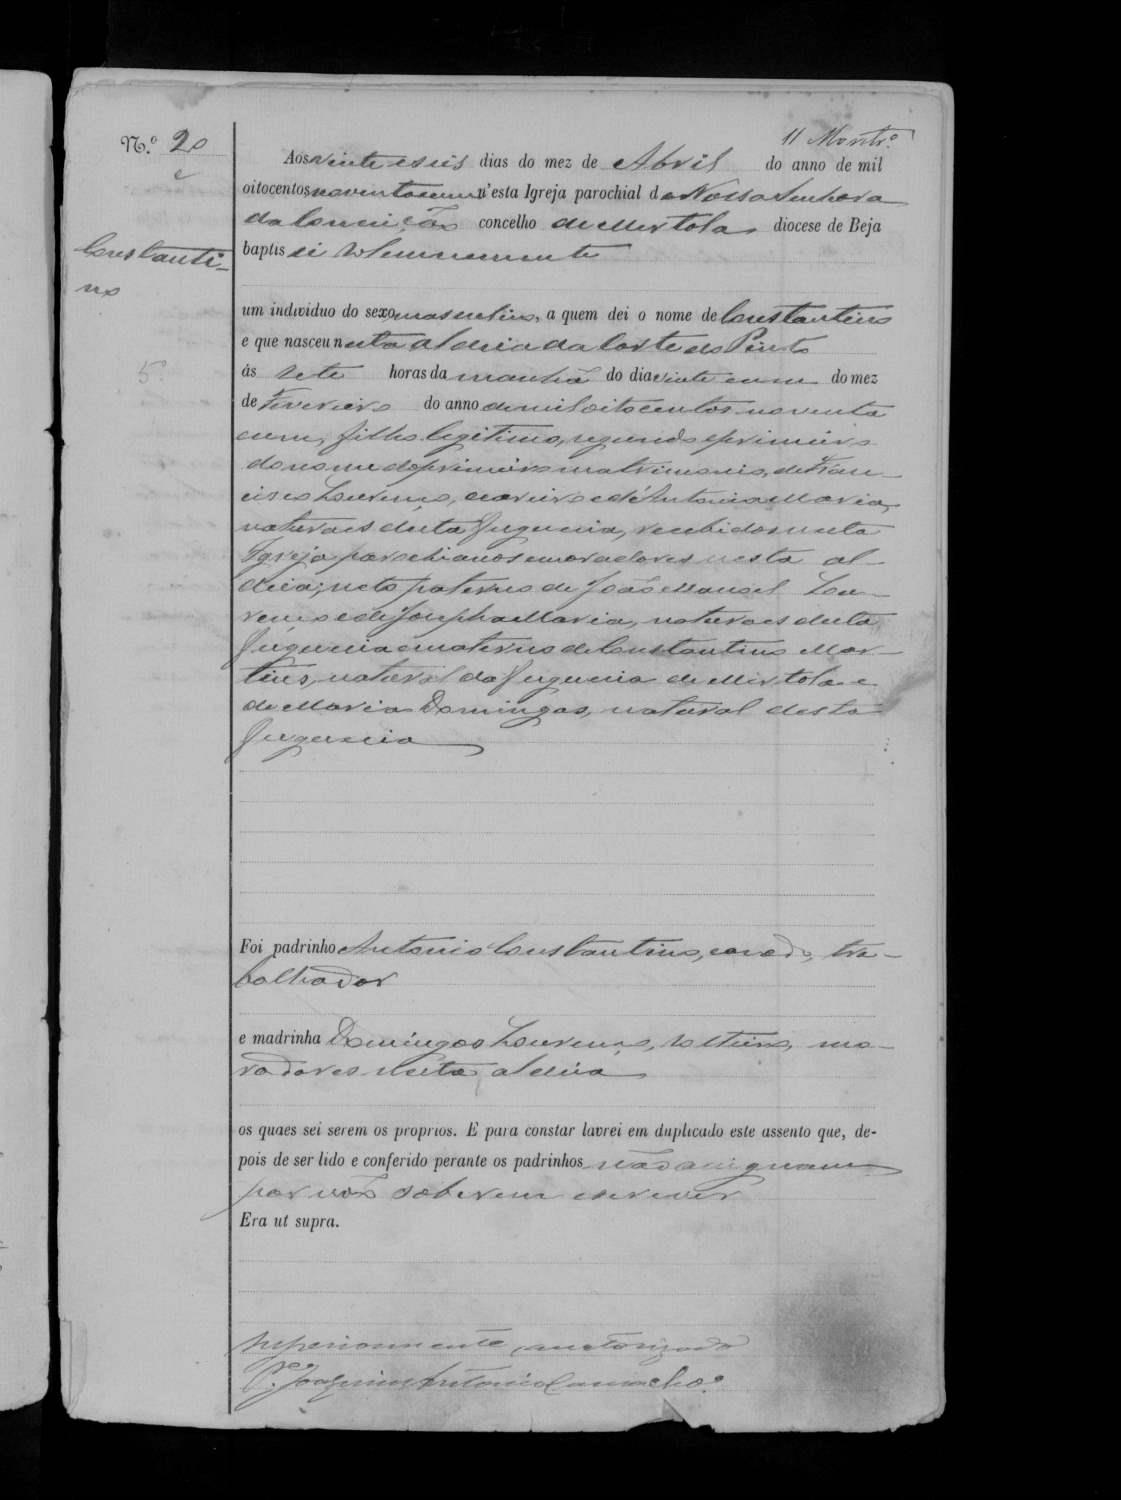 11 Montr.º
N.º 20
Aos vinte e seis dias do mez de Abril do anno de mil
oitocentos noventa e um n'esta Igreja parochial de Nossa Senhora
da Conceição concelho de Mertola diocese de Beja
baptisei solemnemente
Constanti-
no
um individuo do sexo masculino, a quem dei o nome de Constantino
e que nasceu nesta aldeia da Corte do Pinto
ás sete horas da manhã do dia vinte e um do mez
5
de Fevereiro do anno de mil oitocentos noventa
e um, filho legitimo, segundo e primeiro
do nome do primeiro matrimonio, de Fran-
cisco Lourenço, e de Antonia Maria,
naturaes desta freguezia, recebidos nesta
Igreja parochianos e moradores nesta al-
deia; neto paterno de João Manoel Lou-
renço e de Josepha Maria, naturaes desta
freguezia e materno de Constantino Mar-
tins, natural da freguezia de Mertola e
de Maria Domingas, natural desta
freguezia
Foi padrinho Antonio Constantino, casado, tra-
balhador
e madrinha Domingas Lourenço, solteira, mo-
radores nesta aldeia
os quaes sei serem os proprios. E para constar lavrei em duplicado este assento que, de-
pois de ser lido e conferido perante os padrinhos não assignam
por não saberem escrever
Era ut supra.
Superiormente auctorizado
P.e Joaquim Antonio Camacho